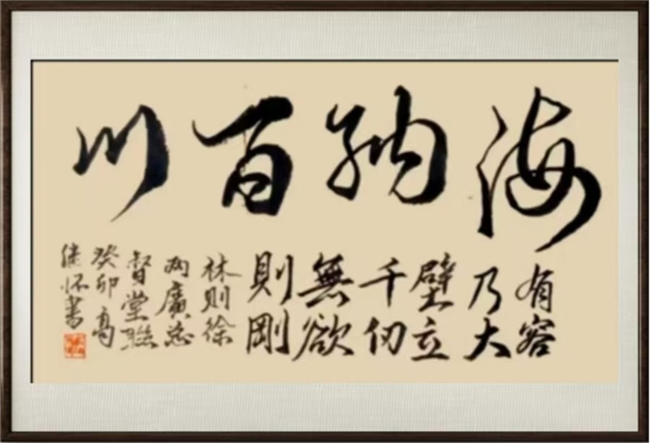 海納百川
有容
乃大
壁立
千仞
無欲
則剛
林則徐
兩廣总
督堂聯
癸卯高
怀書